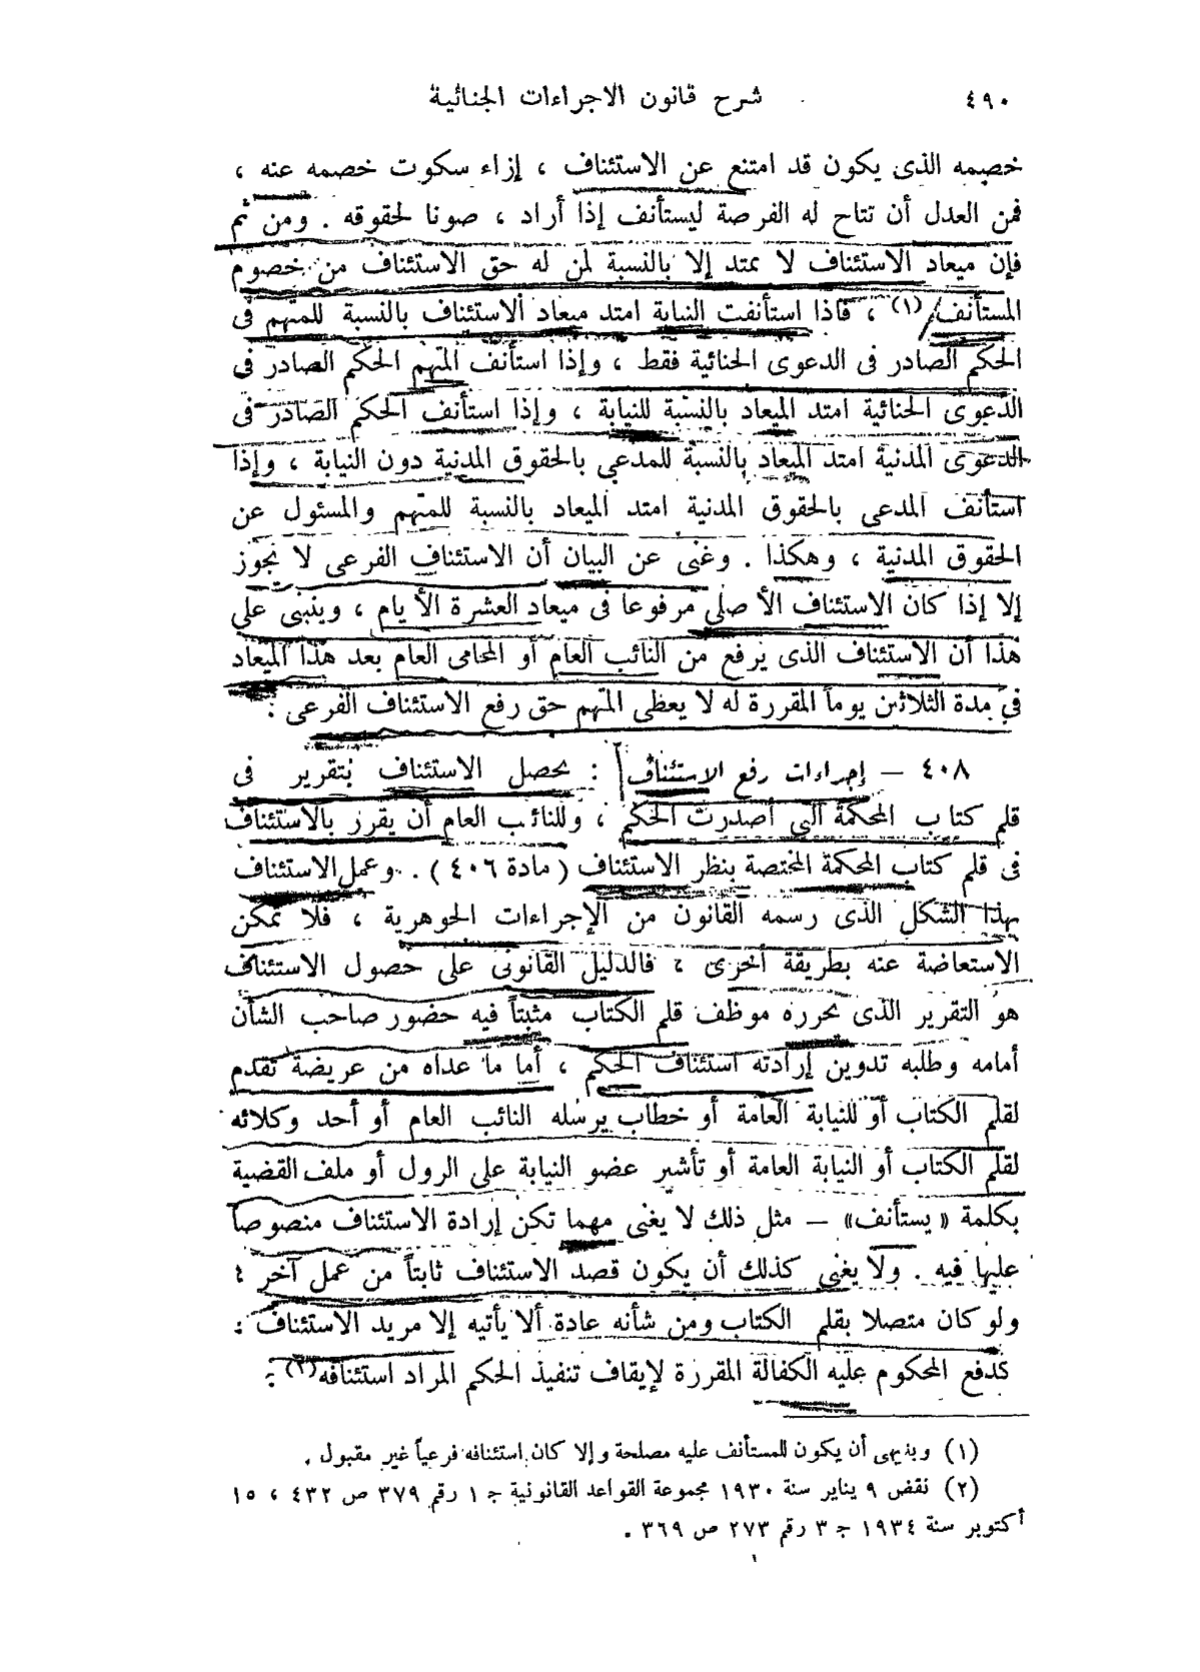 ٤٩٠ شرح قانون الاجراءات الجنائية
خصمه الذى يكون قد امتنع عن الاستئناف ، إزاء سكوت خصمه عنه ،
فمن العدل أن تتاح له الفرصة ليستأنف إذا أراد ، صونا لحقوقه . ومن ثم
فإن ميعاد الاستئناف لا يمتد إلا بالنسبة لمن له حق الاستئناف من خصوم
المستأنف (١) ، فاذا استأنفت النيابة امتد ميعاد الاستئناف بالنسبة للمتهم فى
الحكم الصادر فى الدعوى الجنائية فقط ، وإذا استأنف المتهم الحكم الصادر فى
الدعوى الجنائية امتد الميعاد بالنسبة للنيابة ، وإذا استأنف الحكم الصادر فى
الدعوى المدنية امتد الميعاد بالنسبة للمدعى بالحقوق المدنية دون النيابة ، وإذا
استأنف المدعى بالحقوق المدنية امتد الميعاد بالنسبة للمتهم والمسئول عن
الحقوق المدنية ، وهكذا . وغنى عن البيان أن الاستئناف الفرعى لا يجوز
إلا إذا كان الاستئناف الأصلى مرفوعا فى ميعاد العشرة الأيام ، وينبنى على
هذا أن الاستئناف الذى يرفع من النائب العام أو المحامى العام بعد هذا الميعاد
فى مدة الثلاثين يوماً المقررة له لا يعطى المتهم حق رفع الاستئناف الفرعى .
٤٠٨ – إجراءات رفع الاستئناف : يحصل الاستئناف بتقرير فى
قلم كتاب المحكمة التى أصدرت الحكم ، وللنائب العام أن يقرر بالاستئناف
فى قلم كتاب المحكمة المختصة بنظر الاستئناف ( مادة ٤٠٦ ) . وعمل الاستئناف
بهذا الشكل الذى رسمه القانون من الإجراءات الجوهرية ، فلا تمكن
الاستعاضة عنه بطريقة أخرى ، فالدليل القانونى على حصول الاستئناف
هو التقرير الذى يحرره موظف قلم الكتاب مثبتاً فيه حضور صاحب الشأن
أمامه وطلبه تدوين إرادته استئناف الحكم ، أما ما عداه من عريضة تقدم
لقلم الكتاب أو للنيابة العامة أو خطاب يرسله النائب العام أو أحد وكلائه
لقلم الكتاب أو النيابة العامة أو تأشير عضو النيابة على الرول أو ملف القضية
بكلمة « يستأنف» – مثل ذلك لا يغنى مهما تكن إرادة الاستئناف منصوصاً
عليها فيه . ولا يغنى كذلك أن يكون قصد الاستئناف ثابتاً من عمل آخر ؛
ولو كان متصلا بقلم الكتاب ومن شأنه عادة ألا يأتيه إلا مريد الاستئناف :
كدفع المحكوم عليه الكفالة المقررة لإيقاف تنفيذ الحكم المراد استئنافه (٢) .
(١) وبديهى أن يكون للمستأنف عليه مصلحة وإلا كان استئنافه فرعياً غير مقبول .
(٢) نقض ٩ يناير سنة ١٩٣٠ مجموعة القواعد القانونية ج ١ رقم ٣٧٩ ص ٤٣٢ ، ١٥
أكتوبر سنة ١٩٣٤ ج ٣ رقم ٢٧٣ ص ٣٦٩ .